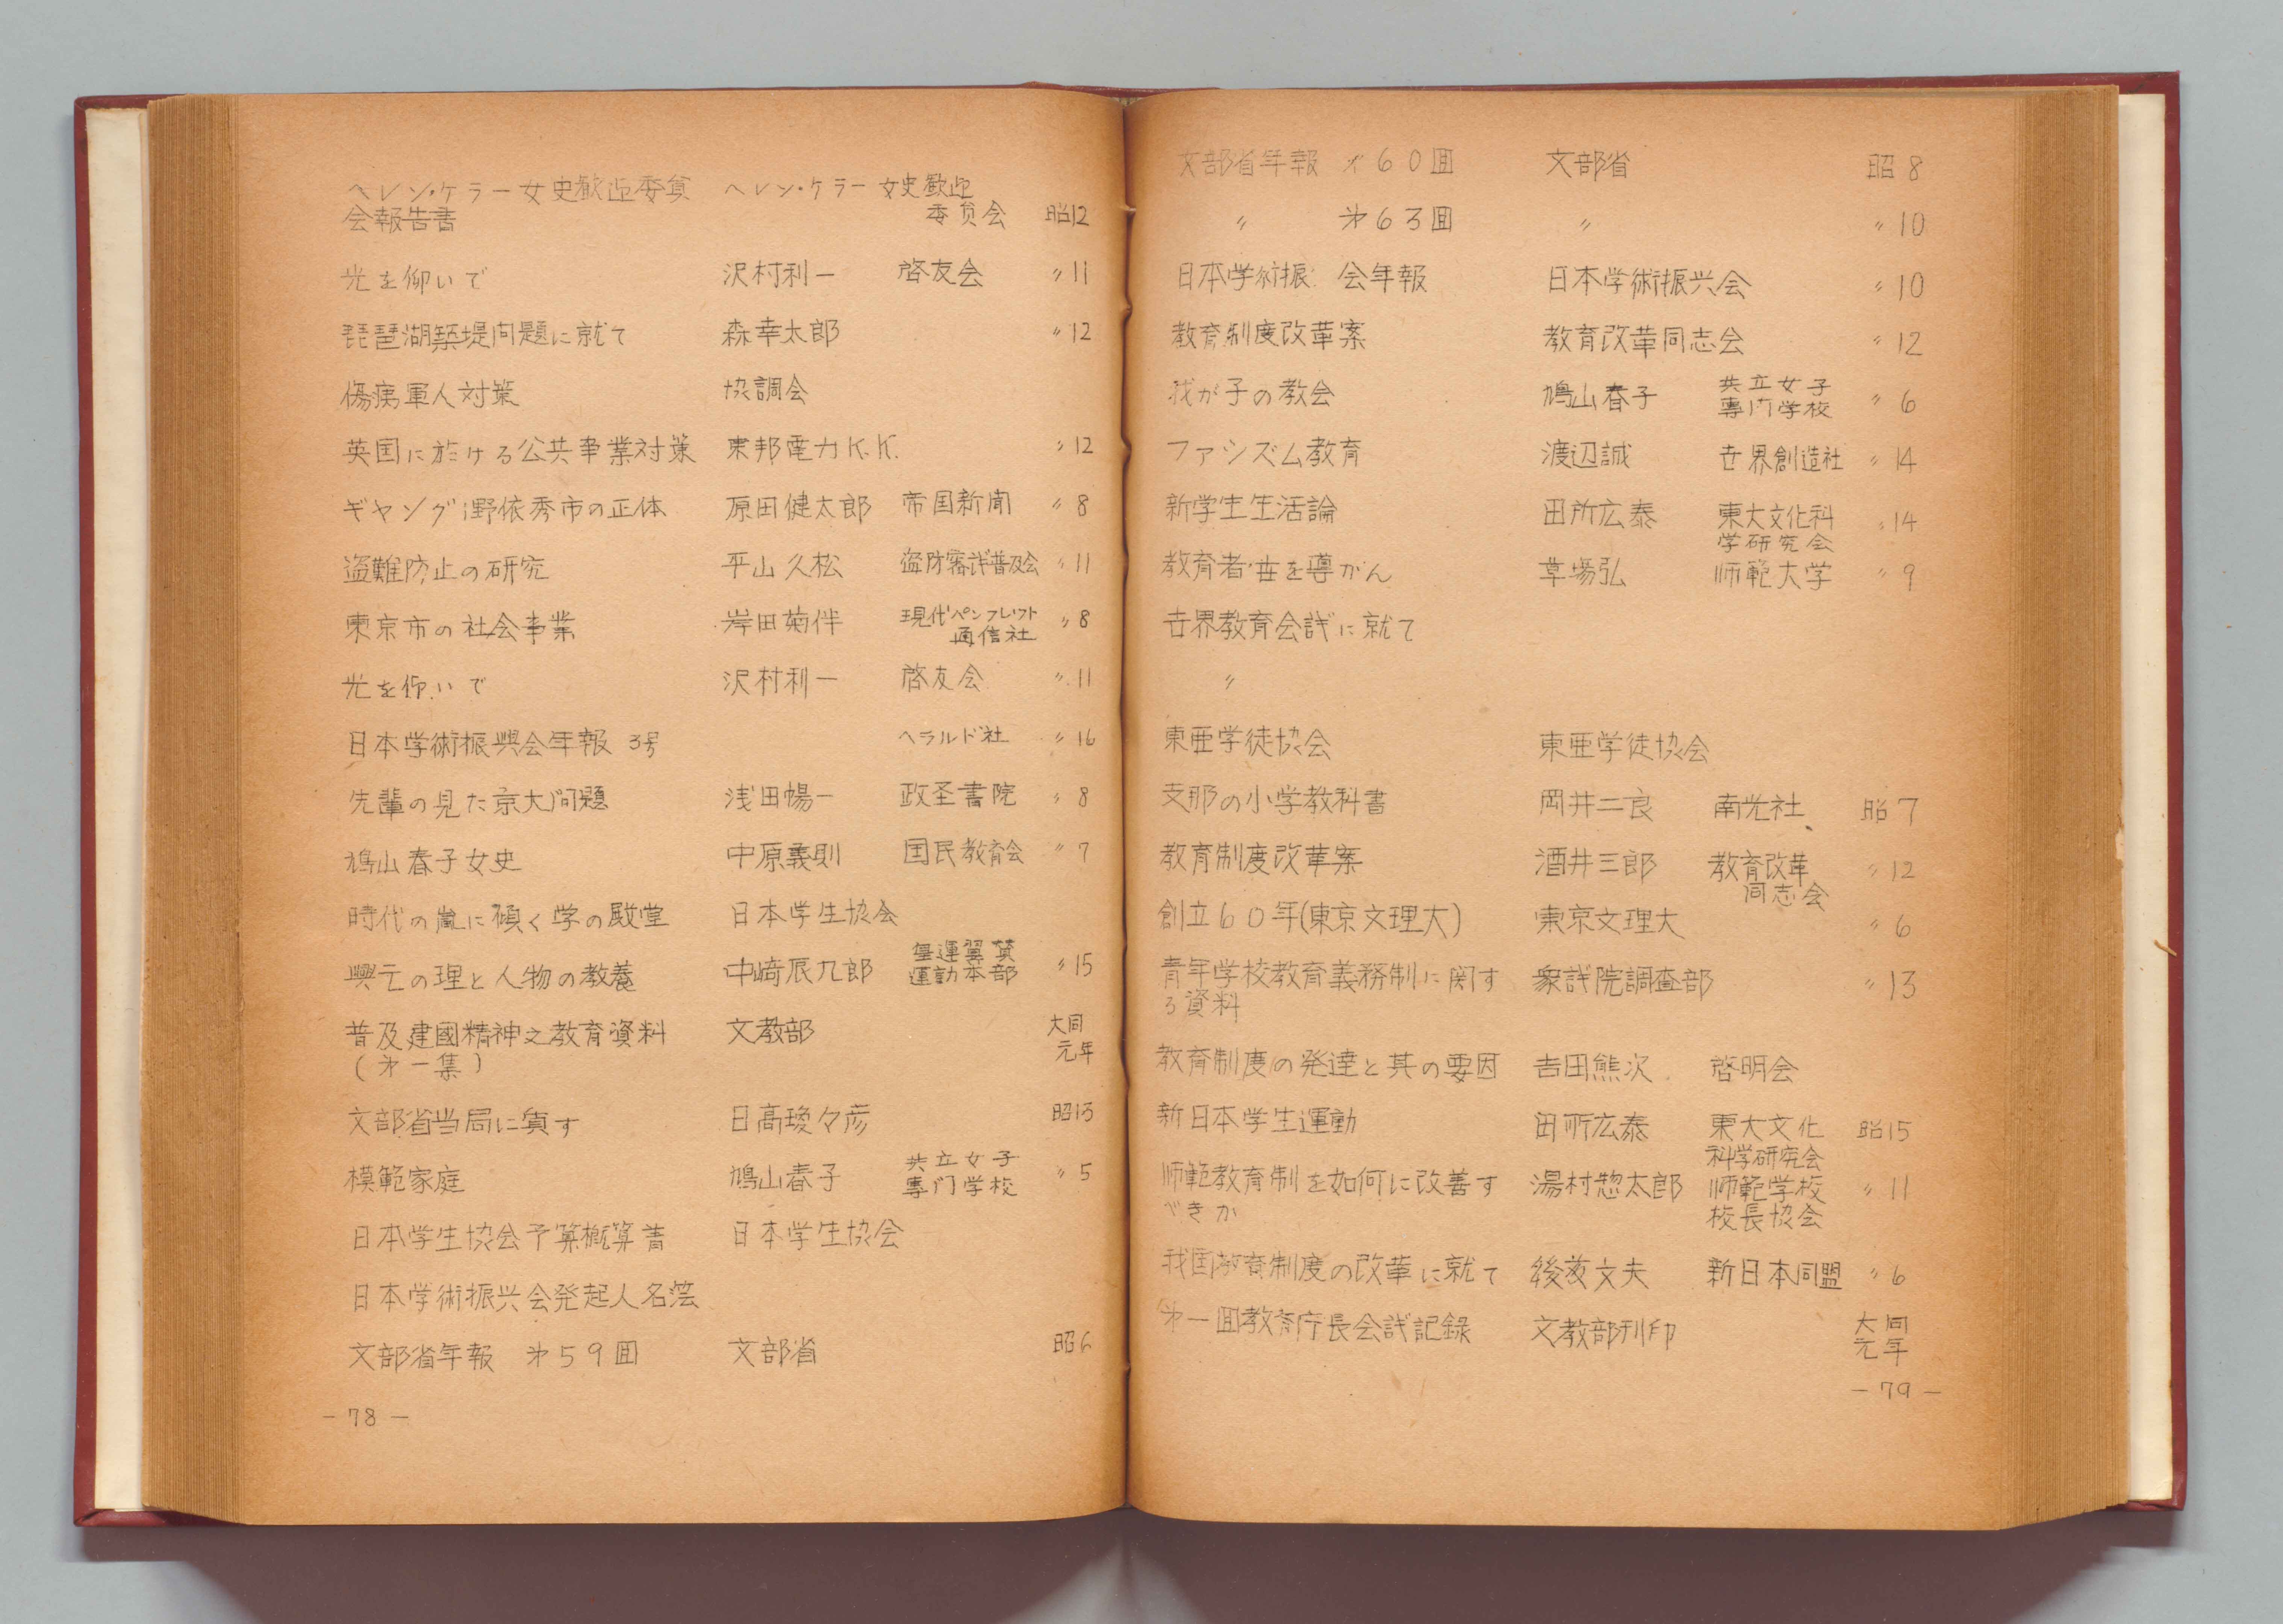 ヘレン・ケラー女史歓迎委員 ヘレン・ケラー女史歓迎
会報告書 委員会 昭12
光を仰いで 沢村利一 啓友会 〃11
琵琶湖築堤問題に就て 森幸太郎 〃12
傷痍軍人対策 協調会
英国に於ける公共事業対策 東邦電力K.K. 〃12
ギャング野依秀市の正体 原田健太郎 帝国新聞 〃8
盗難防止の研究 平山久松 盗防審議普及会 〃11
東京市の社会事業 岸田菊伴 現代パンフレット 〃8
通信社
光を仰いで 沢村利一 啓友会 〃11
日本学術振興会年報 3号 ヘラルド社 〃16
先輩の見た京大問題 浅田暢一 政圣書院 〃8
鳩山春子女史 中原義則 国民教育会 〃7
時代の嵐に傾く学の殿堂 日本学生協会
興亡の理と人物の教養 中崎辰九郎 皇運翼賛 〃15
運動本部
普及建國精神之教育資料 文教部 大同
(㐧一集) 元年
文部省当局に質す 日高瓊々彦 昭13
模範家庭 鳩山春子 共立女子 〃5
専門学校
日本学生協会予算概算書 日本学生協会
日本学術振兴会発起人名簿
文部省年報 㐧59回 文部省 昭6
- 78 -
文部省年報 㐧60回 文部省 昭8
〃 㐧63回 〃 〃10
日本学術振 会年報 日本学術振兴会 〃10
教育制度改革案 教育改革同志会 〃12
我が子の教会 鳩山春子 共立女子 〃6
専門学校
ファシズム教育 渡辺誠 世界創造社 〃14
新学生生活論 田所広泰 東大文化科 〃14
学研究会
教育者世を導がん 草場弘 师範大学 〃9
世界教育会議に就て
〃
東亜学徒協会 東亜学徒協会
支那の小学教科書 岡井二良 南光社 昭7
教育制度改革案 酒井三郎 教育改革 〃12
同志会
創立60年(東京文理大) 東京文理大 〃6
青年学校教育義務制に関す 衆議院調査部 〃13
る資料
教育制度の発達と其の要因 吉田熊次 啓明会
新日本学生運動 田所広泰 東大文化 昭15
科学研究会
师範教育制を如何に改善す 湯村惣太郎 师範学校 〃11
べきか 校長協会
我国教育制度の改革に就て 後藤文夫 新日本同盟 〃6
㐧一回教育庁長会議記録 文教部刊印 大同
元年
- 79 -